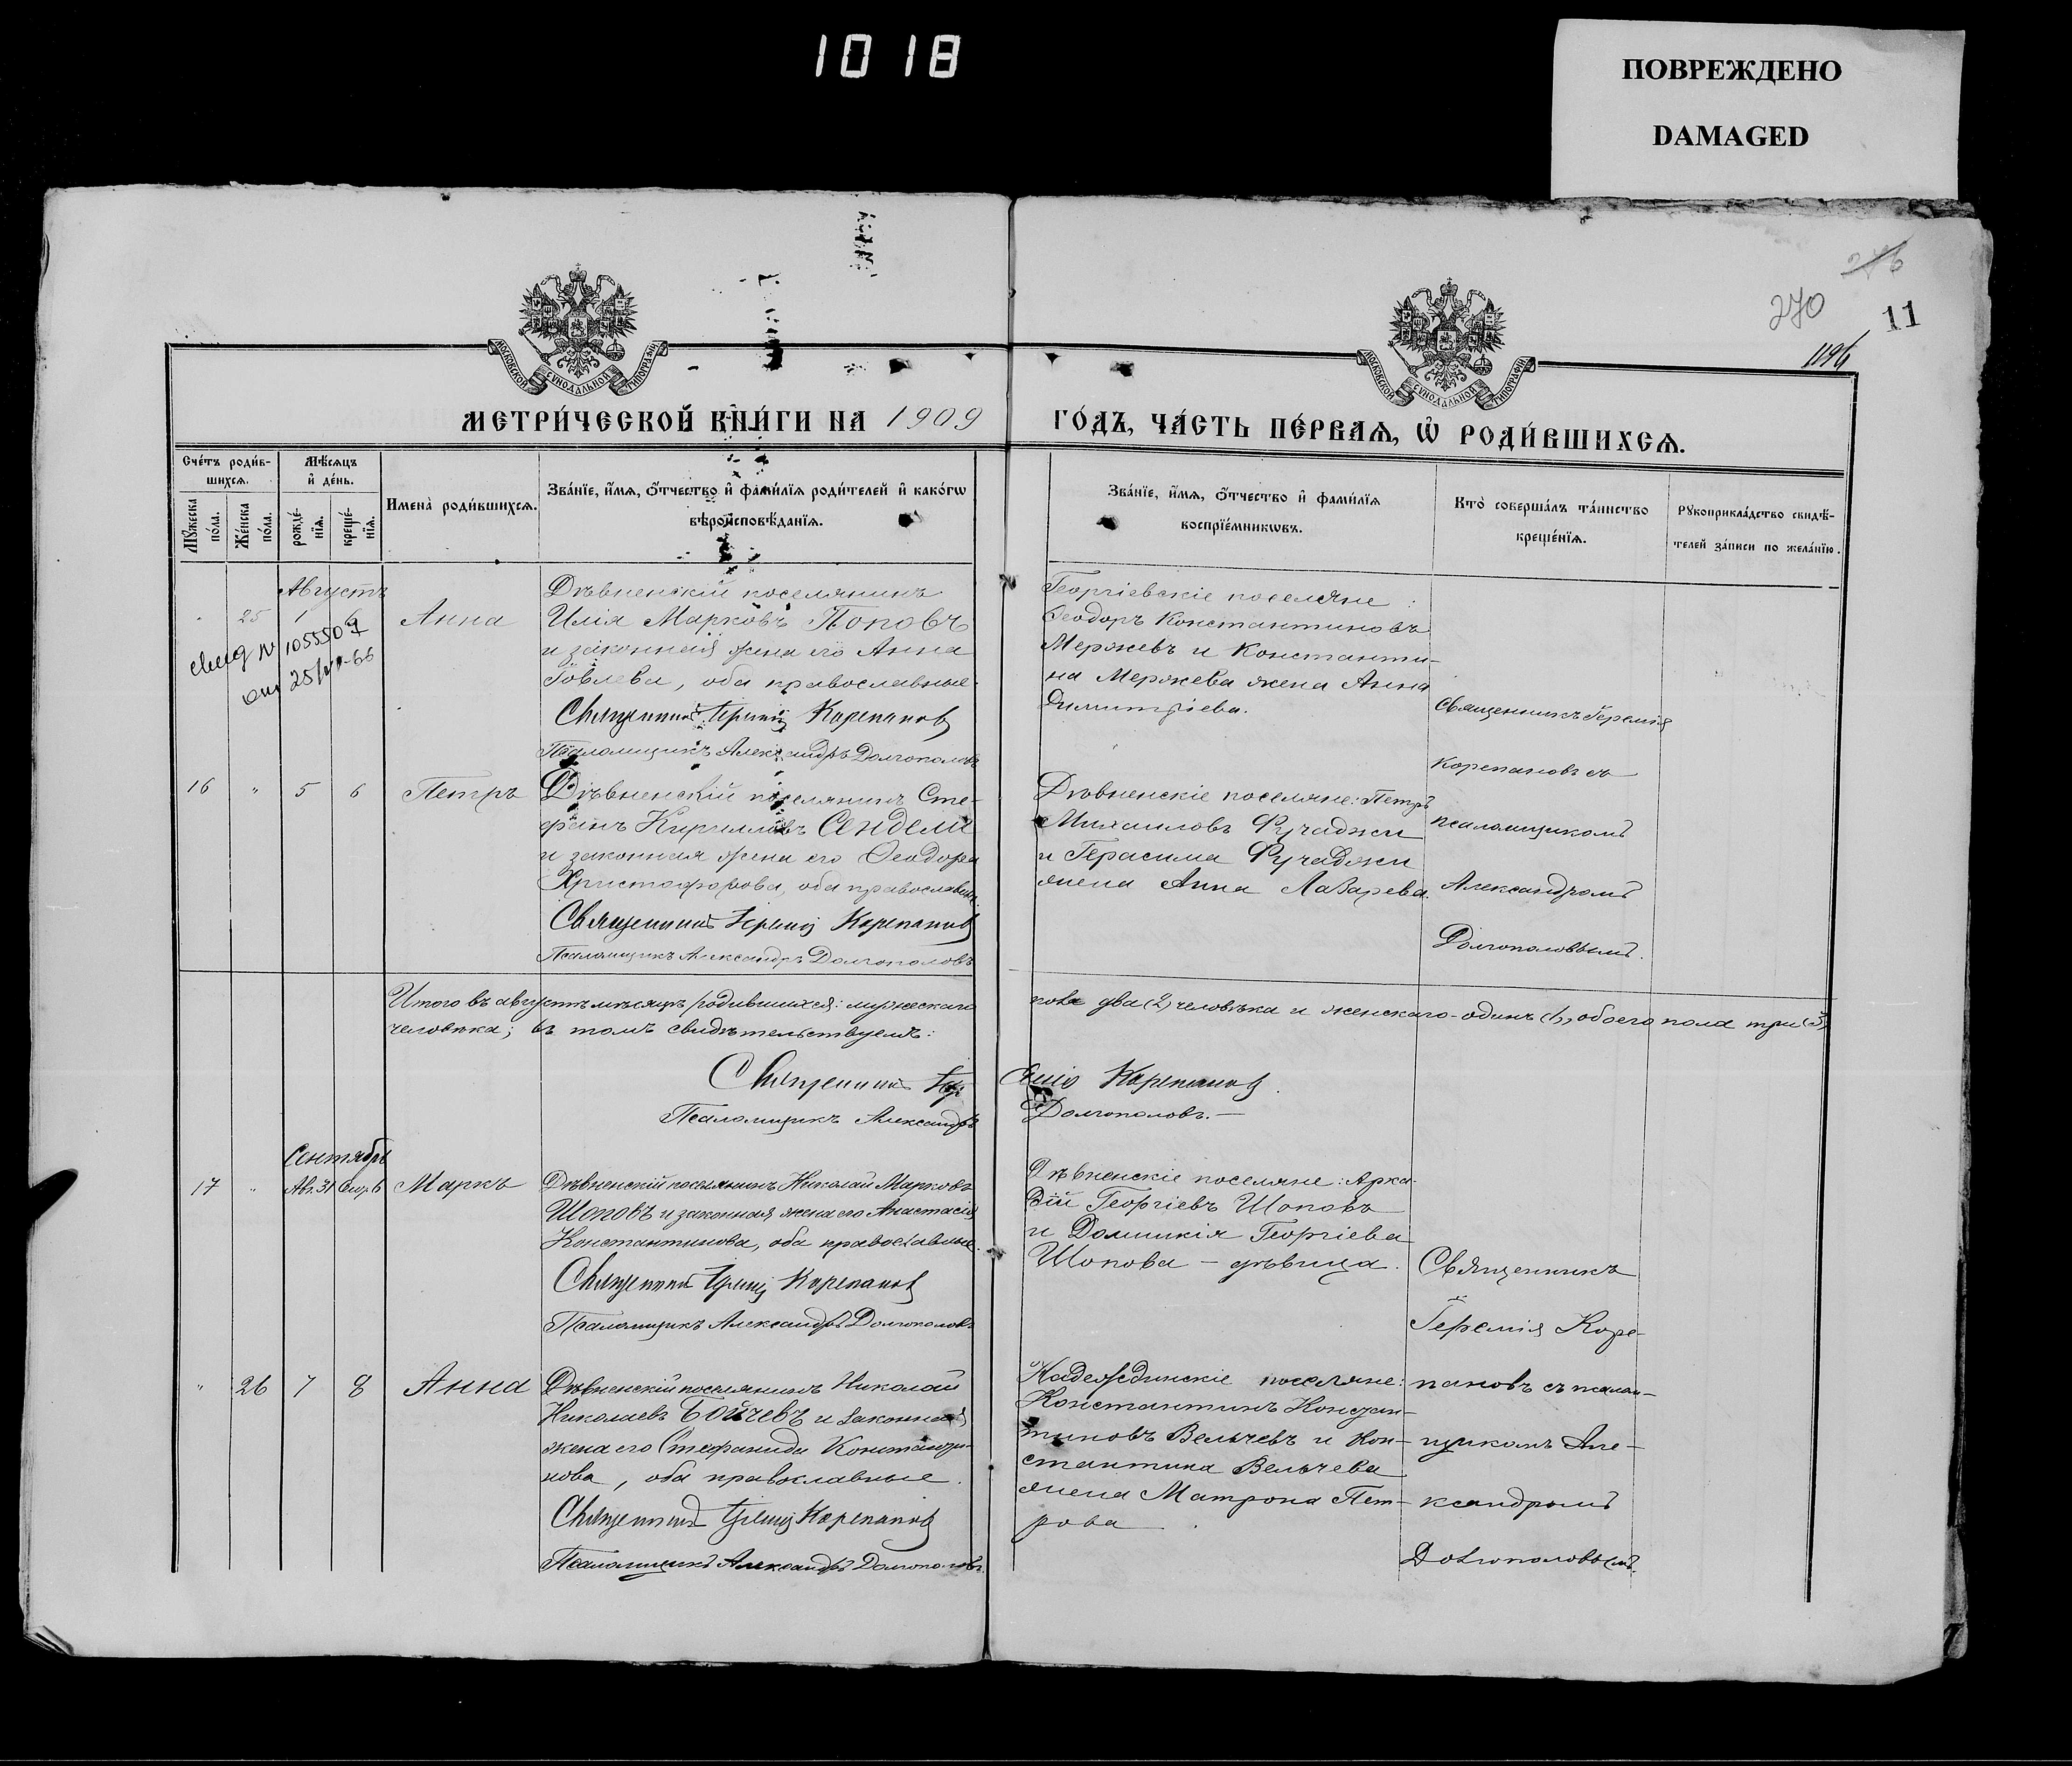 1018
ПОВРЕЖДЕНО
DAMAGED
270
11
МОСКОВСКОЙ СѴНОДАЛЬНОЙ ТИПОГРАФІИ
МОСКОВСКОЙ СѴНОДАЛЬНОЙ ТИПОГРАФІИ
МЕТРИ́ЧЕСКОЙ КНИ́ГИ НА 1909
ГО́ДЪ, ЧА́СТЬ ПЕ́РВАѦ, Ѡ҆ РОДИ́ВШИХСѦ.
Сче́тъ роди́в-
шихсѧ.
Мꙋ́жеска по́ла.
Же́нска по́ла.
Мѣ́сѧцъ
и҆ де́нь.
рожде́-
нїѧ.
креще́-
нїѧ.
Имена̀ роди́вшихсѧ.
Зва́нїе, и҆́мѧ, ѻ҆́тчество и҆ фами́лїѧ роди́телей и҆ како́гѡ
вѣроисповѣ́данїѧ.
Зва́нїе, и҆́мѧ, ѻ҆́тчество и҆ фами́лїѧ
воспрїе́мникѡвъ.
Кто̀ соверша́лъ та́инство
креще́нїѧ.
Рꙋкоприкла́дство свидѣ́-
телей за́писи по жела́нїю.
Августъ
25 1 6 Анна
Дѣвненскій поселянинъ
Илія Марковъ Поповъ
и законная жена его Анна
Іовлева, оба православные.
Священникъ Іеремія Корепановъ
Псаломщикъ Александръ Долгополовъ
Георгіевскіе поселяне:
Ѳеодоръ Константиновъ
Мержевъ и Константи-
на Мержева жена Анна
Димитріева.
Священникъ Іеремія
Корепановъ съ
псаломщикомъ
Александромъ
Долгополовымъ.
16 " 5 6 Петръ
Дѣвненскій поселянинъ Сте-
фанъ Кирилловъ Сендели
и законная жена его Ѳеодора
Христофорова, оба православные.
Священникъ Іеремія Корепановъ
Псаломщикъ Александръ Долгополовъ
Дѣвненскіе поселяне: Петръ
Михаиловъ Фучаджи
и Герасима Фучаджи
жена Анна Лазарева.
Итого въ августѣ мѣсяцѣ родившихся: мужескаго пола два (2) человѣка и женскаго - одинъ (1), обоего пола три (3)
человѣка; въ томъ свидѣтельствуемъ:
Священникъ Іеремія Корепановъ.
Псаломщикъ Александръ Долгополовъ.—
Сентябрь
17 " Авг. 31 Сент. 6 Маркъ
Дѣвненскій поселянинъ Николай Марковъ
Шоповъ и законная жена его Анастасія
Константинова, оба православные.
Священникъ Іеремія Корепановъ
Псаломщикъ Александръ Долгополовъ
Дѣвненскіе поселяне: Арка-
дій Георгіевъ Шоповъ
и Домникія Георгіева
Шопова - дѣвица.
Священникъ
Іеремія Коре-
пановъ съ псалом-
щикомъ Але-
ксандромъ
Долгополовымъ.
" 26 7 8 Анна
Дѣвненскій поселянинъ Николай
Николаевъ Бойчевъ и законная
жена его Стефанида Константи-
нова, оба православные.
Священникъ Іеремія Корепановъ
Псаломщикъ Александръ Долгополовъ.
Надеждинскіе поселяне:
Константинъ Констан-
тиновъ Вельчевъ и Кон-
стантина Вельчева
жена Матрона Пет-
рова.